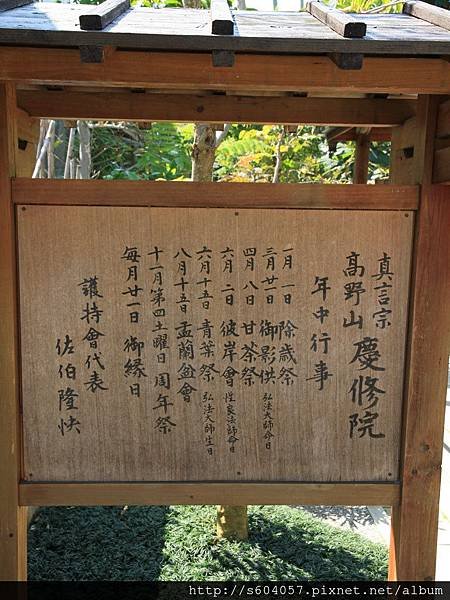 真言宗
高野山 慶修院
年中行事
一月一日 除歲祭
三月廿一日 御影供 弘法大師命日
四月八日 甘茶祭
六月二日 彼岸會 性良法師命日
六月十五日 青葉祭 弘法大師生日
八月十五日 盂蘭盆會
十一月第四土曜日 周年祭
每月廿一日 御緣日
護持會代表
佐伯隆快
http://s604057.pixnet.net/album